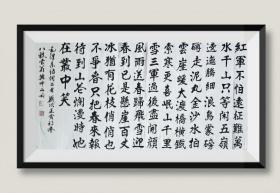 紅軍不怕遠征難萬
水千山只等閑五嶺
逶迤騰細浪烏蒙磅
礴走泥丸金沙水拍
雲崖暖大渡橋橫鐵
索寒更喜岷山千里
雪三軍過後盡開顏
風雨送春歸飛雪迎
春到已是懸崖百丈
冰猶有花枝俏俏也
不爭春只把春來報
待到山花爛漫時她
在叢中笑